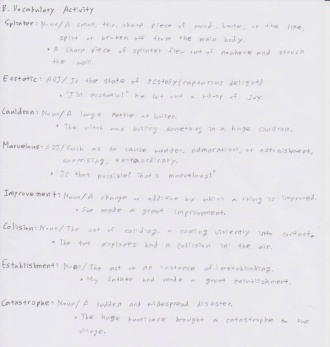 B. Vocabulary Activity
Splinter: Noun/A small, thin, sharp piece of wood, bone, or the like,
split or broken off from the main body.
• A sharp piece of splinter flew out of nowhere and struck
the wall.
Ecstatic: ADJ/ In the state of ecstasy (rapturous delight)
• "I'm ecstatic!" he let out a of Joy.
Cauldron: Noun/A large kettle or boiler.
• The witch was boiling something in a huge cauldron.
Marvelous: ADJ/Such as to cause wonder, admiration, or astonishment,
surprising, extraordinary.
• "Is that possible? That's marvelous!"
Improvement: Noun/A change or addition by which a thing is improved.
• made a great improvement.
Collision: Noun/The act of colliding, a coming violently into contact.
• The two airplanes had a collision in the air.
Establishment: Noun/The act or an instance of establishing.
• My father had made a great establishment.
Catastrophe: Noun/A sudden and widespread disaster.
• The huge hurricane brought a catastrophe to the
village.